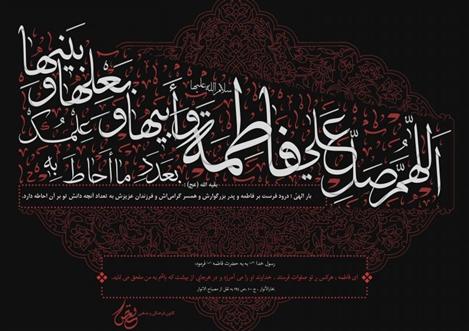 اللّهُمَّ صَلِّ عَلی فاطمة و أبیها و بعلها و بنیها
سلام الله علیها
بعدد ما أحاط به علمک
بقیة الله (عج) :
بار الهیٰ ؛ درود فرست بر فاطمه و پدر بزرگوارش و همسر گرامی‌اش و فرزندان عزیزش به تعداد آنچه دانش تو بر آن احاطه دارد.
رسول خدا به به حضرت فاطمه فرمود:
ای فاطمه ، هرکس بر تو صلوات فرستد، خداوند او را می آمرزد و در هرجای از بهشت که باشم به من ملحق می کند.
بحارالأنوار ، ج
به نقل از مصباح الانوار
کانون فرهنگی و مذهبی